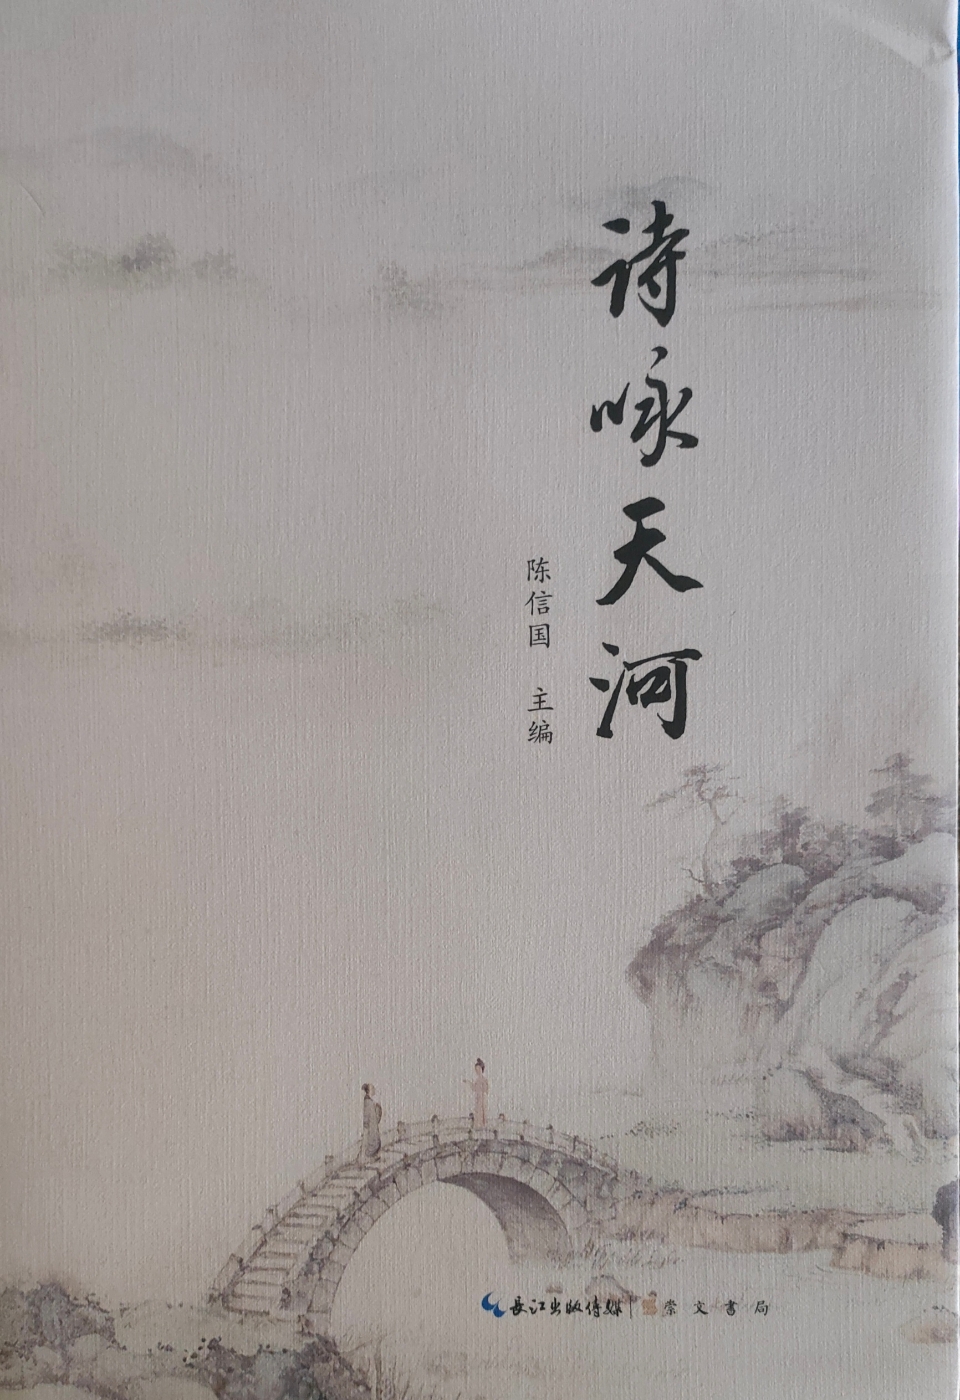 诗咏天河
陈信国 主编
长江出版传媒 崇文書局